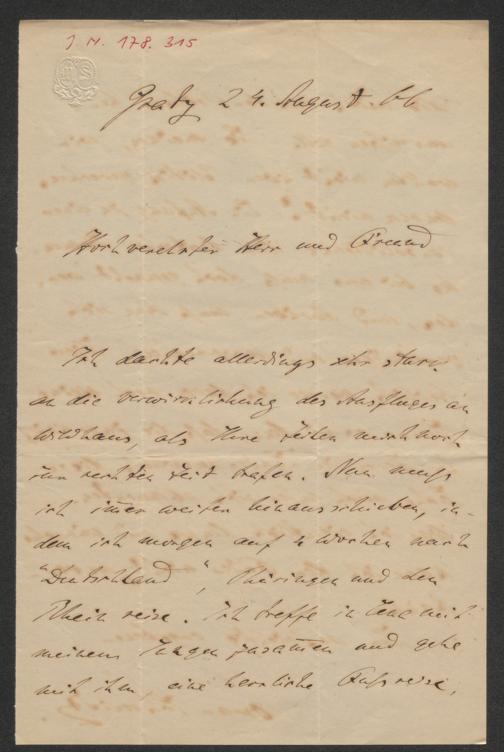 J N. 178.315
Gratz 24. August. 66
Hochverehrter Herr und Freund
Ich dachte allerdings sehr stark
an die Verwirklichung des Ausfluges an
Wildhaus, als Ihre Zeilen mich noch
zur rechten Zeit trafen. Nun muß
ich ihn weiter hinausschieben, in-
dem ich morgen auf 4 Wochen nach
"Deutschland", Thüringen und den
Rhein reise. Ich treffe in Jena mit
meinem Jungen zusam̅en und gehe
mit ihm, eine herrliche Fußreise,